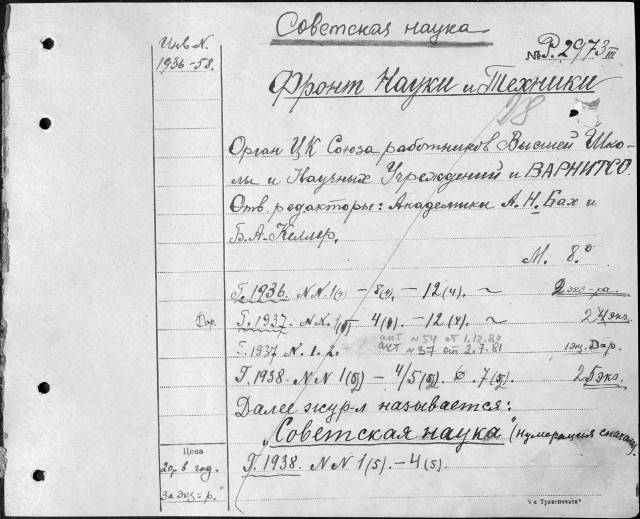 Советская наука
Инв. N.
1936-58.
№ Р.2973 III
Фронт Науки и Техники
28
Орган ЦК Союза работников Высшей Шко-
лы и Научных Учреждений и ВАРНИТСО.
Отв. редакторы: Академики А. Н. Бах и
Б. А. Келлер.
М. 8.°
Г. 1936. NN. 1(4) – 8(4). – 12(4). ~ 2 экз-ра.
Дар. Г. 1937. NN. – 12(4). ~ 2 экз.
акт N 54 от 1.12.80
Г. 1937 N. 1. 2. акт N 37 от 2.7.81 1 экз. Дар.
Г. 1938. NN 1(5) – 4/5(5). 6. 7(5). 2 экз.
Далее жур-л называется:
„Советская наука" (нумерация сначала).
Г. 1938. NN 1(5). – 4(5).
Цена
20 р. в год.
За экз = р.